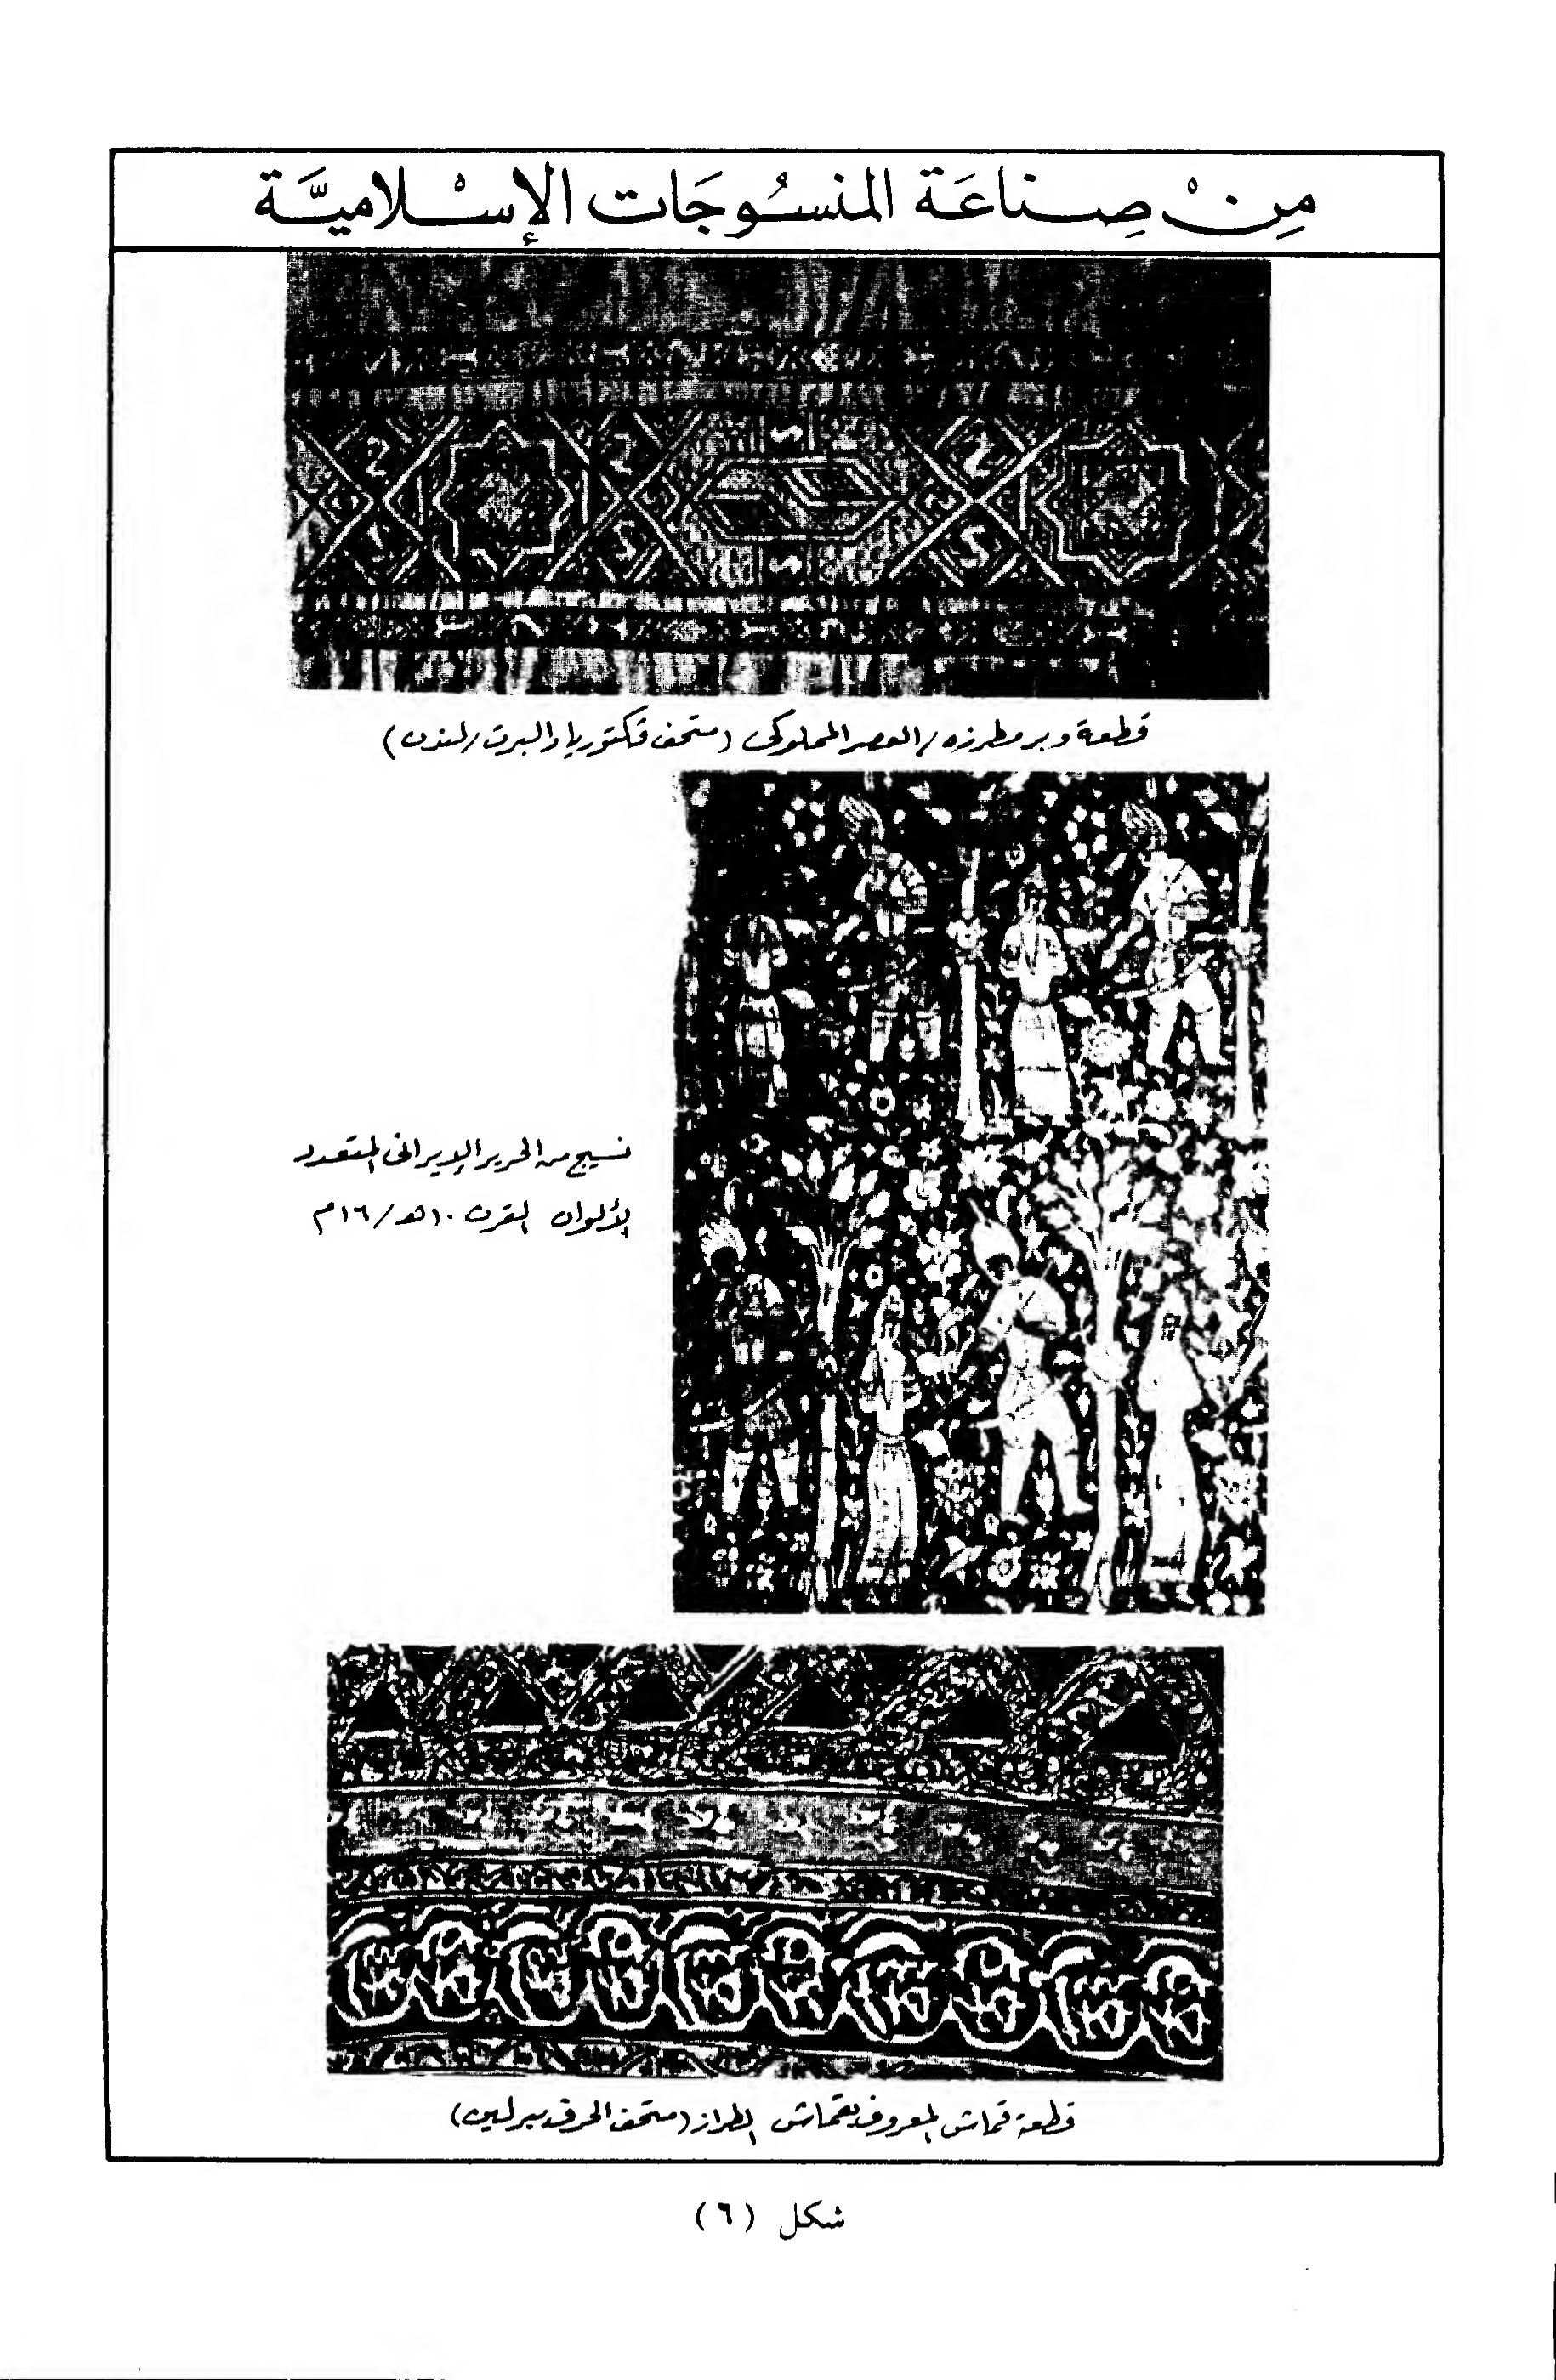 مِنْ صِنَاعَة المنسُوجَات الإسْلاميَّة
قطعة وبر مطرزه / العصر المملوكى (متحف فكتوريا والبرت / لندن)
نسيج من الحرير الإيرانى المتعدد
الألوان القرن ١٠هـ/١٦م
قطعة قماش المعروف بقماش الطراز (متحف الحرف ببرلين)
شكل (٦)